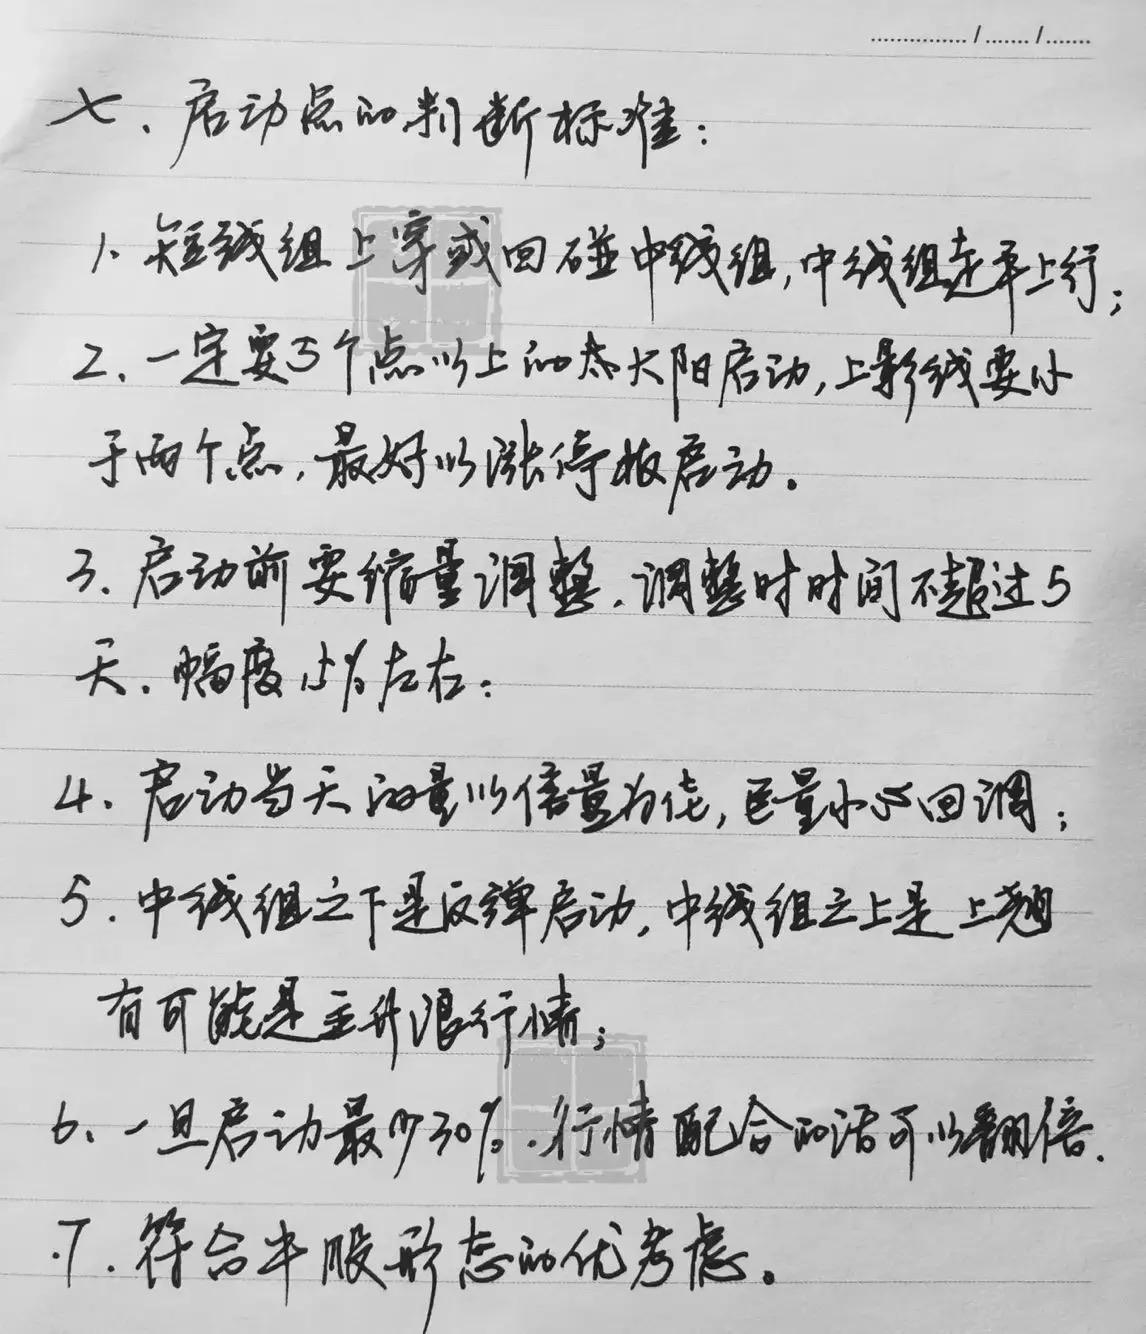 七、启动点的判断标准：
1、短线组上穿或回碰中线组，中线组走平上行；
2、一定要5个点以上的大阳启动，上影线要小
于两个点，最好以涨停板启动。
3、启动前要缩量调整，调整时时间不超过5
天、幅度15%左右；
4、启动当天的量以倍量为佳，巨量小心回调；
5、中线组之下是反弹启动，中线组之上是上翘
有可能是主升浪行情；
6、一旦启动最少30%，行情配合的话可以翻倍.
7、符合牛股形态的优考虑。